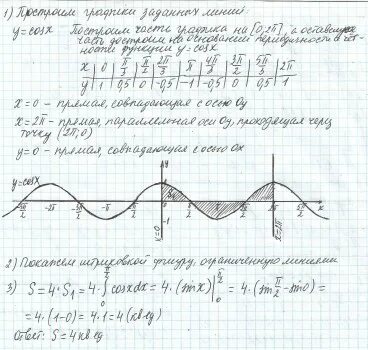 1) Построим графики заданных линий:
y=cosx Построим часть графика на [0,2π], а оставшуюся
часть достроим на основании периодичности и чёт-
ности функции y=cosx
x | 0 | π/3 | π/2 | 2π/3 | π | 4π/3 | 3π/2 | 5π/3 | 2π
y | 1 | 0,5 | 0 | -0,5 | -1 | -0,5 | 0 | 0,5 | 1
x=0 - прямая, совпадающая с осью Oy
x=2π - прямая, параллельная оси Oy, проходящая через
точку (2π;0)
y=0 - прямая, совпадающая с осью Ox
y=cosx
y
S₁
-2π
x
-1
x=0
x=2π
2) Покажем штриховкой фигуру, ограниченную линиями
3) S=4·S₁ = 4·∫₀^(π/2) cosxdx = 4·(sinx)|₀^(π/2) = 4·(sin π/2 - sin0) =
= 4·(1-0) = 4·1 = 4 (кв.ед)
Ответ: S=4кв.ед